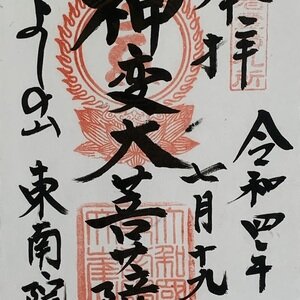 奉拝
令和四年
七月十九
神変大菩薩
よしの山
東南院